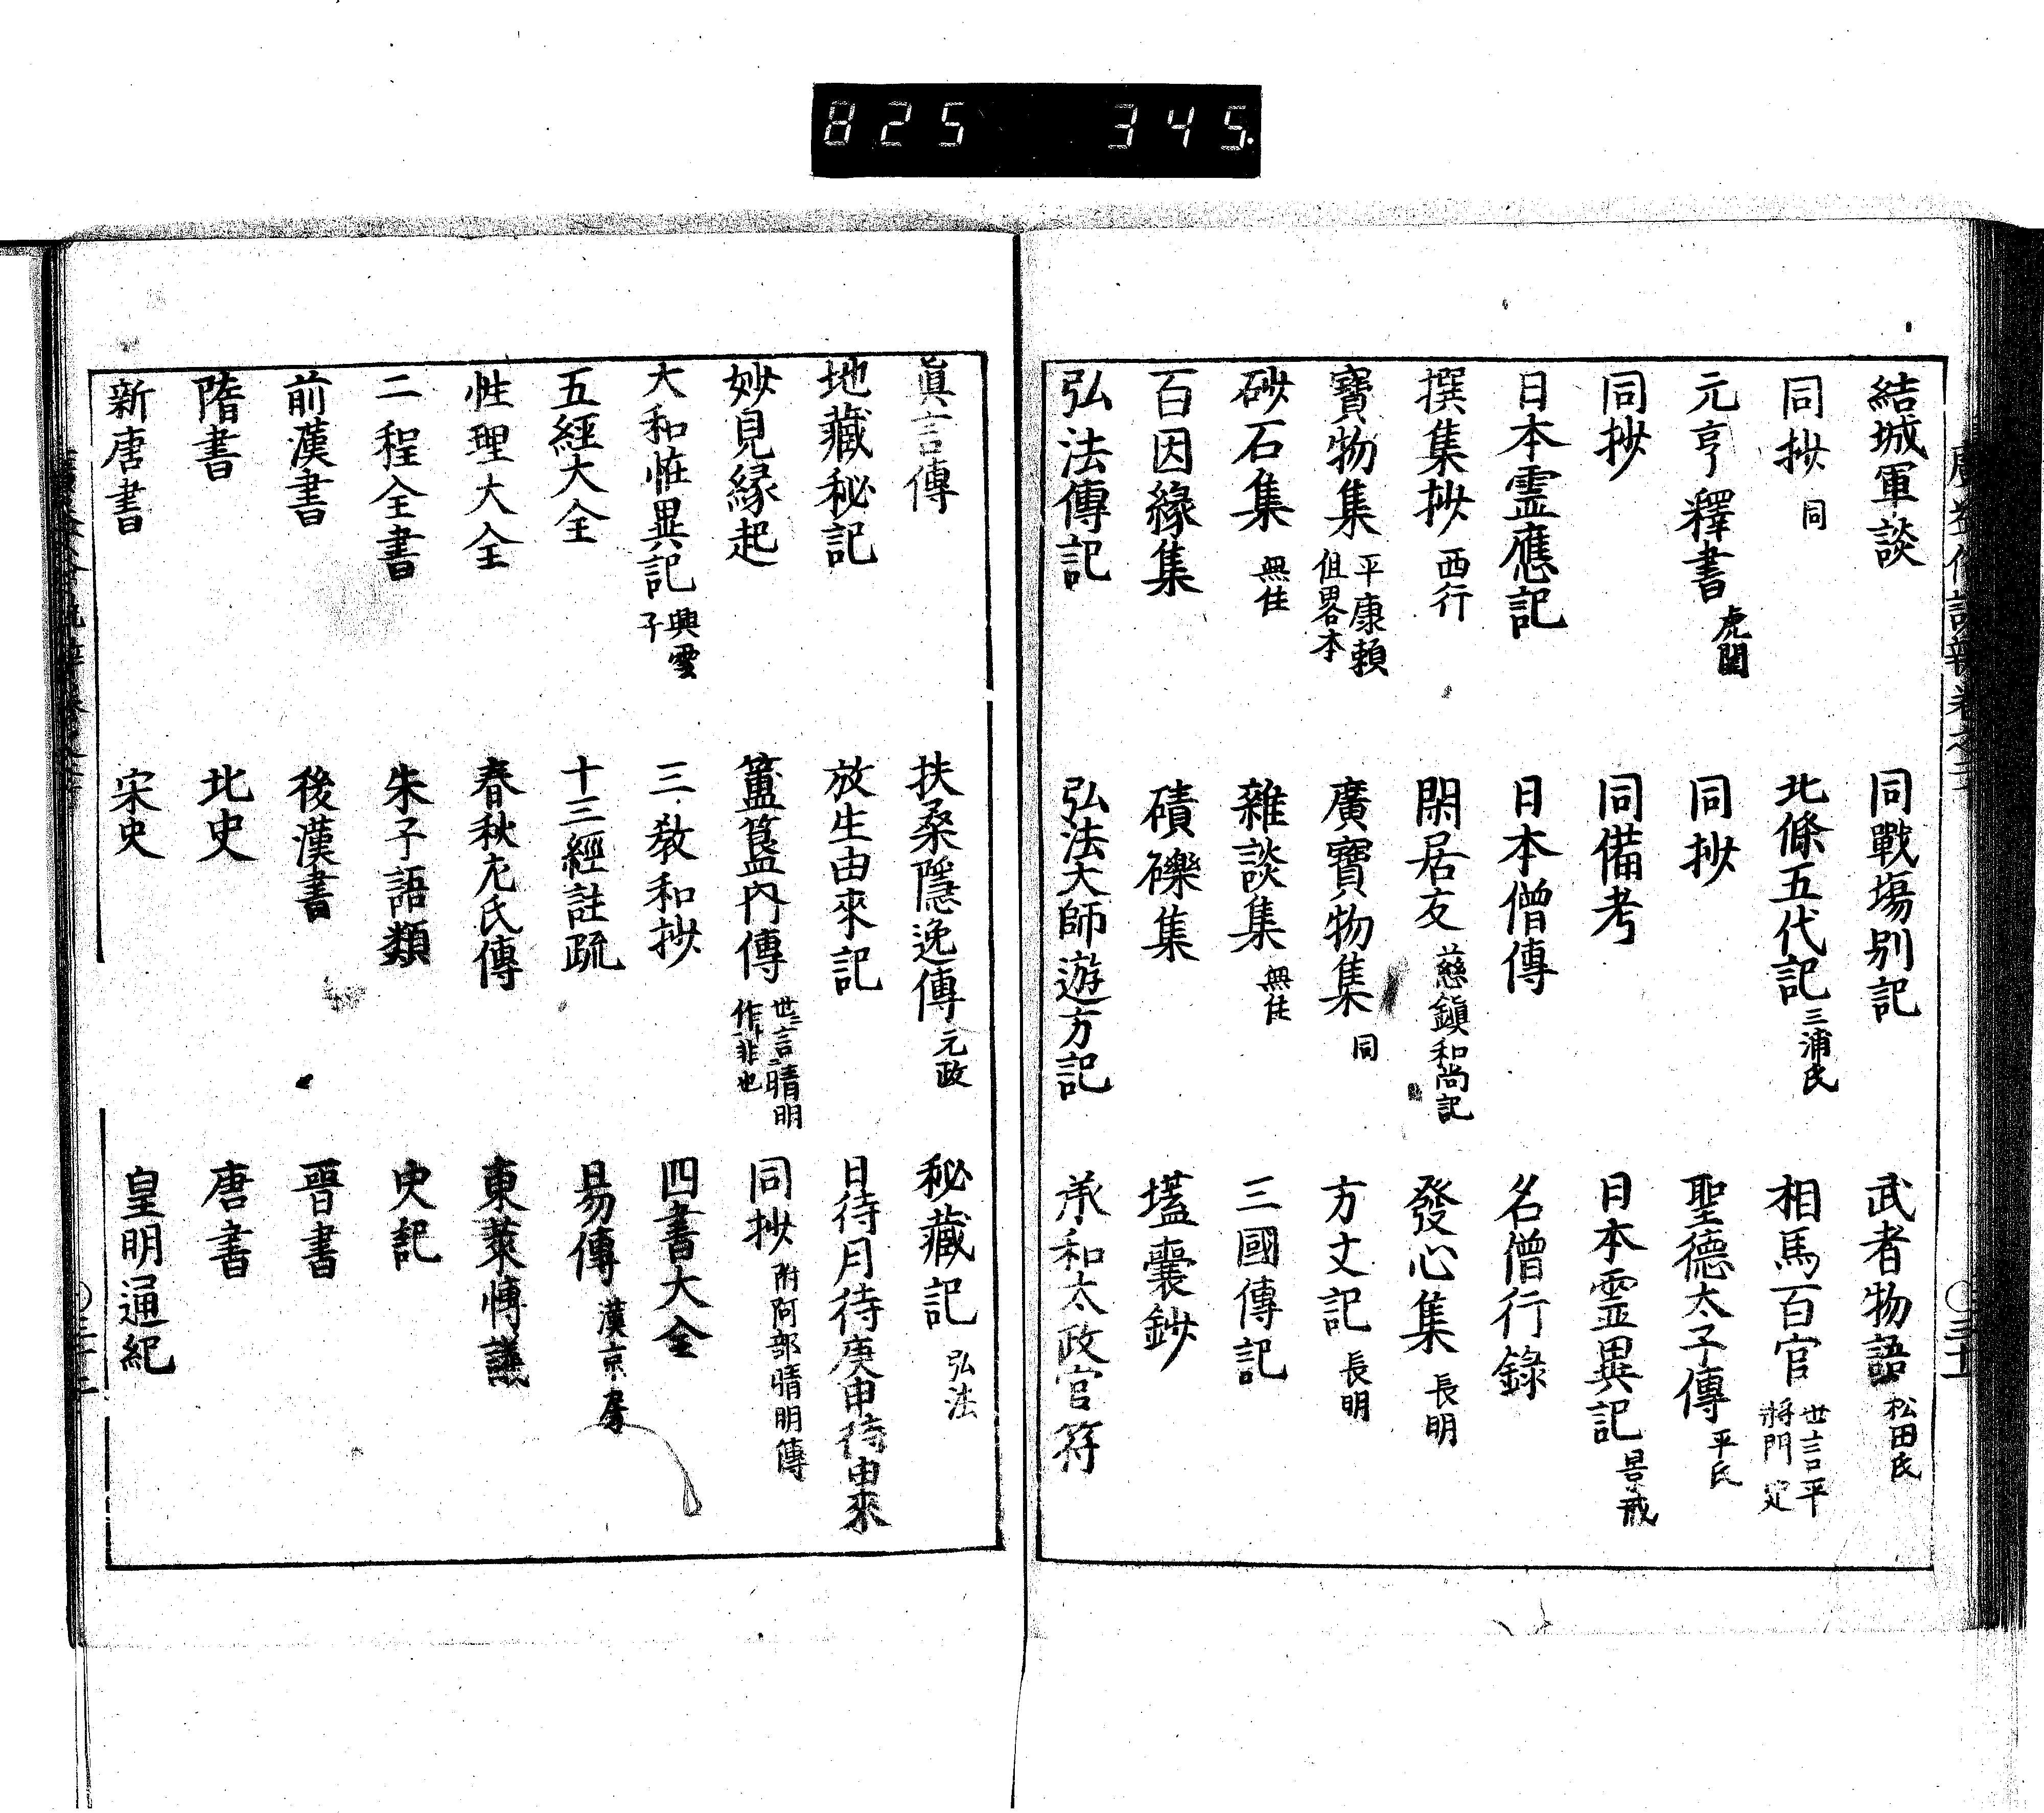 825 345.
結城軍談 同戰場別記 武者物語 松田氏
同抄 同 北條五代記 三浦氏 相馬百官 世言平將門定
元亨釋書 虎關 同抄 聖德太子傳 平氏
同抄 同備考 日本霊異記 景戒
日本霊應記 日本僧傳 名僧行錄
撰集抄 西行 閑居友 慈鎭和尚記 發心集 長明
寶物集 平康頼但畧本 廣寶物集 同 方丈記 長明
砂石集 無住 雜談集 無住 三國傳記
百因緣集 磧礫集 壒囊鈔
弘法傳記 弘法大師遊方記 承和太政官符
眞言傳 扶桑隱逸傳 元政 秘藏記 弘法
地藏秘記 放生由來記 日待月待庚申待由來
妙見緣起 簠簋內傳 世言晴明作非也 同抄 附阿部晴明傳
大和恠異記 興雲子 三教和抄 四書大全
五經大全 十三經註疏 易傳 漢京房
性理大全 春秋左氏傳 東萊博議
二程全書 朱子語類 史記
前漢書 後漢書 晋書
隋書 北史 唐書
新唐書 宋史 皇明通紀